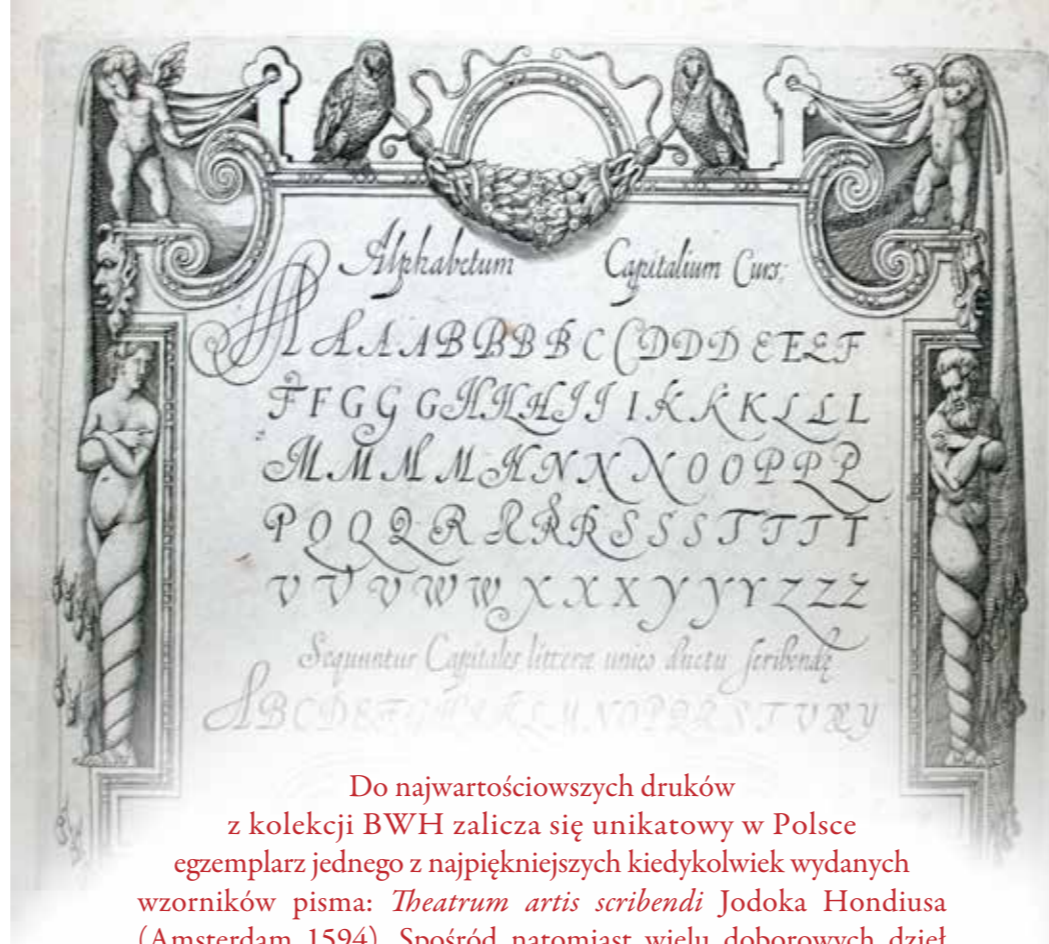 Alphabetum Capitalium Curs:
A A A A B B B B C C D D D E E E F
F F G G G H H H I I I K K K L L L
M M M M N N N N O O P P P
P Q Q Q R R R R S S S T T T T
V V V W W X X X Y Y Y Z Z Z
Sequuntur Capitales litteræ unico ductu scribendę
A B C D E F G H I K L M N O P Q R S T V X Y
Do najwartościowszych druków
z kolekcji BWH zalicza się unikatowy w Polsce
egzemplarz jednego z najpiękniejszych kiedykolwiek wydanych
wzorników pisma: Theatrum artis scribendi Jodoka Hondiusa
(Amsterdam 1594). Spośród natomiast wielu doborowych dzieł